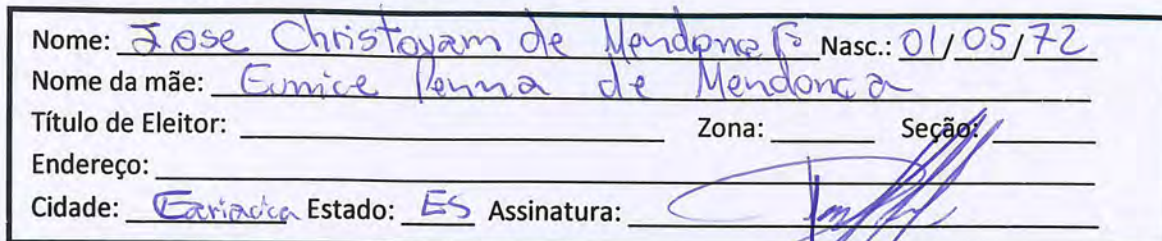 Nome: Jose Christovam de Mendonça Fº Nasc.: 01/05/72
Nome da mãe: Eunice Penna de Mendonça
Título de Eleitor: Zona: Seção:
Endereço:
Cidade: Cariacica Estado: ES Assinatura: